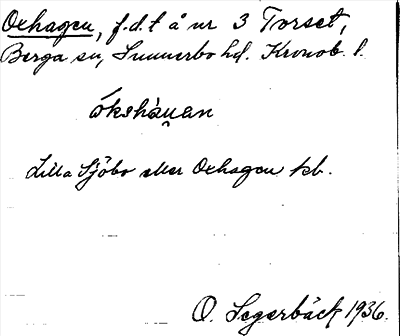 Oxhagen, f.d.t å nr 3 Torset,
Berga sn, Sunnerbo hd. Kronob. l.
ókshàu̯an
Lilla Sjöbo eller Oxhagen kb.
O. Segerbäck 1936.